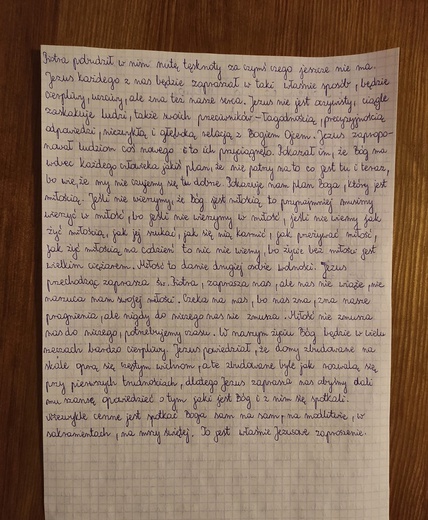 Piotra pobudził w nim nutę tęsknoty za czymś czego jeszcze nie ma.
Jezus każdego z nas będzie zapraszał w taki właśnie sposób, będzie
cierpliwy, uważny, ale zna też nasze serca. Jezus nie jest oczywisty, ciągle
zaskakuje ludzi, także swoich przeciwników - łagodnością, precyzyjnością
odpowiedzi, niezwykłą i głęboką relacją z Bogiem Ojcem. Jezus zapropo-
nował ludziom coś nowego i to ich przyciągnęło. Pokazał im, że Bóg ma
wobec każdego człowieka jakiś plan, że nie patrzy na to co jest tu i teraz,
bo wie, że my nie czujemy się tu dobrze. Pokazuje nam plan Boga, który jest
miłością. Jeśli nie wierzymy, że Bóg jest miłością to przynajmniej musimy
wierzyć w miłość, bo jeśli nie wierzymy w miłość, jeśli nie wiemy jak
żyć miłością, jak jej szukać, jak się nią karmić, jak przeżywać miłość,
jak żyć miłością na codzień to nic nie wiemy, bo życie bez miłości jest
wielkim ciężarem. Miłość to danie drugiej osobie wolności. Jezus
przechodząc zaprasza św. Piotra, zaprasza nas, ale nas nie wiąże, nie
narzuca nam swojej miłości. Czeka na nas, bo nas zna, zna nasze
pragnienia, ale nigdy do niczego nas nie zmusza. Miłość nie zmusza
nas do niczego, potrzebujemy czasu. W naszym życiu Bóg będzie w wielu
rzeczach bardzo cierpliwy. Jezus powiedział, że domy zbudowane na
skale oprą się gęstym wichrom, a te zbudowane byle jak rozwalą się
przy pierwszych trudnościach, dlatego Jezus zaprasza nas abyśmy dali
mu szansę opowiedzieć o tym jaki jest Bóg i z nim się spotkali.
Niezwykle cenne jest spotkać Boga sam na sam, na modlitwie, w
sakramentach, na mszy świętej. To jest właśnie Jezusowe zaproszenie.